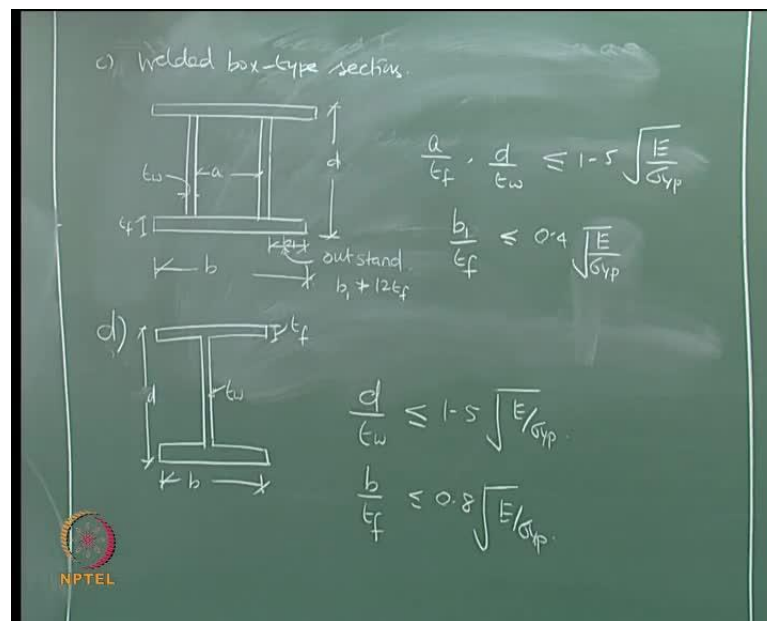 c) Welded box-type sections.
tw
a
d
tf
b
out stand
b₁ ≯ 12tf
a/tf , d/tw ≤ 1-5 √(E/σyp)
b₁/tf ≤ 0.4 √(E/σyp)
d)
tf
d
tw
b
d/tw ≤ 1-5 √(E/σyp).
b/tf ≤ 0.8 √(E/σyp).
NPTEL